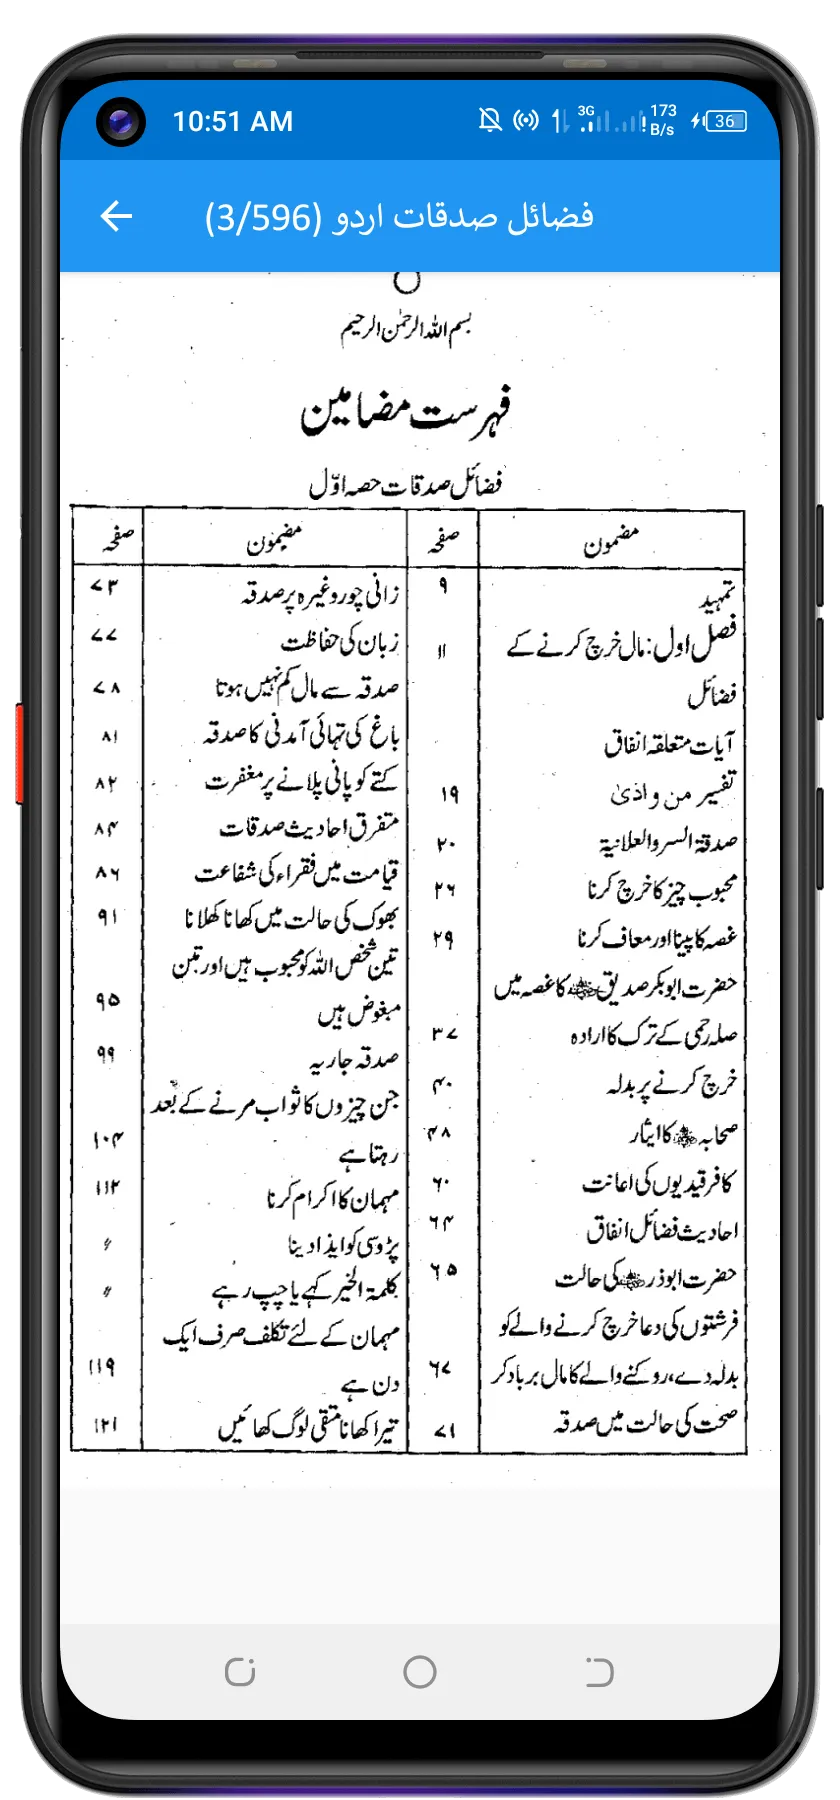 10:51 AM
3G
173
B/s
36
فضائل صدقات اردو (3/596)
بسم اللہ الرحمٰن الرحیم
فہرست مضامین
فضائل صدقات حصہ اوّل
مضمون صفحہ
تمہید ۹
فصل اول: مال خرچ کرنے کے ۱۱
فضائل
آیات متعلقہ انفاق
تفسیر من و اذیٰ ۱۹
صدقۃ السر والعلانیۃ ۲۰
محبوب چیز کا خرچ کرنا ۲۶
غصہ کا پینا اور معاف کرنا ۲۹
حضرت ابوبکر صدیق رضی اللہ عنہ کا غصہ میں
صلہ رحمی کے ترک کا ارادہ ۳۷
خرچ کرنے پر بدلہ ۴۰
صحابہ کا ایثار ۴۸
کافر قیدیوں کی اعانت ۶۰
احادیث فضائل انفاق ۶۴
حضرت ابوذر رضی اللہ عنہ کی حالت ۶۵
فرشتوں کی دعا خرچ کرنے والے کو
بدلہ دے، روکنے والے کا مال برباد کر ۶۷
صحت کی حالت میں صدقہ ۷۱
مضمون صفحہ
زانی چور وغیرہ پر صدقہ ۷۳
زبان کی حفاظت ۷۷
صدقہ سے مال کم نہیں ہوتا ۷۸
باغ کی تہائی آمدنی کا صدقہ ۸۱
کتے کو پانی پلانے پر مغفرت ۸۲
متفرق احادیث صدقات ۸۴
قیامت میں فقراء کی شفاعت ۸۶
بھوک کی حالت میں کھانا کھلانا ۹۱
تین شخص اللہ کو محبوب ہیں اور تین
مبغوض ہیں ۹۵
صدقہ جاریہ ۹۹
جن چیزوں کا ثواب مرنے کے بعد
رہتا ہے ۱۰۴
مہمان کا اکرام کرنا ۱۱۲
پڑوسی کو ایذا دینا 〃
کلمۃ الخیر کہے یا چپ رہے 〃
مہمان کے لئے تکلف صرف ایک
دن ہے ۱۱۹
تیرا کھانا متقی لوگ کھائیں ۱۲۱